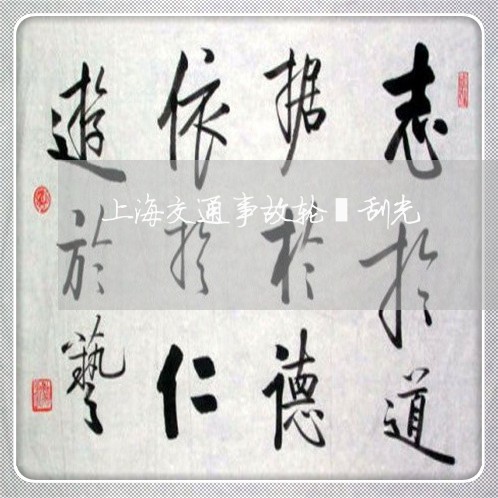 志於道
据於德
依於仁
遊於藝
上海交通事故轮 刮光